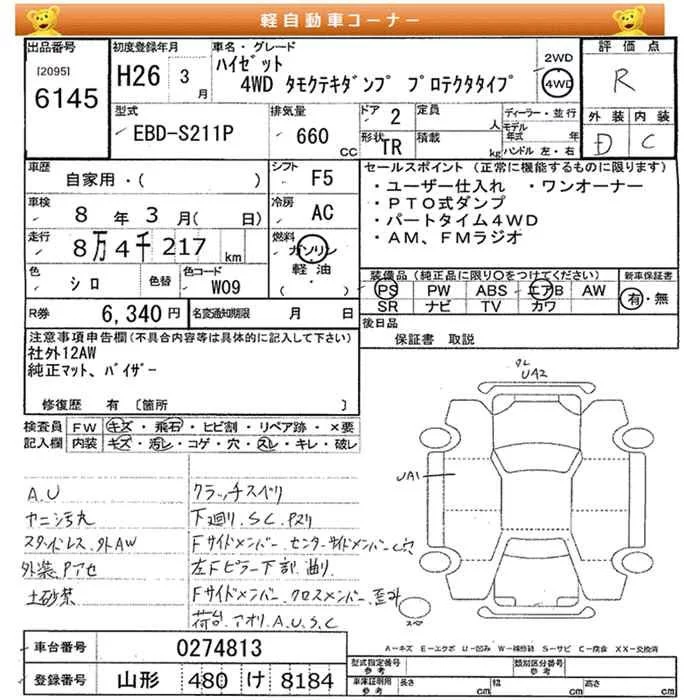 軽自動車コーナー
出品番号 [2095] 6145
初度登録年月 H26 3 月
車名・グレード ハイゼット
4WD タモクテキダンプ プロテクタタイプ
2WD
4WD
評価点 R
外装 D 内装 C
型式 EBD-S211P
排気量 660 CC
ドア 2
形状 TR
定員 人
積載 kg
ディーラー・並行
モデル年式 年
ハンドル 左・右
車歴 自家用・( )
車検 8 年 3 月( 日)
走行 8万4千217 km
色 シロ 色替
色コード W09
シフト F5
冷房 AC
燃料 ガソリン
軽油
( )
セールスポイント (正常に機能するものに限ります)
・ユーザー仕入れ ・ワンオーナー
・PTO式ダンプ
・パートタイム4WD
・AM、FMラジオ
装備品(純正品に限り○をつけてください)
PS PW ABS エアB AW
SR ナビ TV カワ
新車保証書
有・無
後日品
保証書 取説
R券 6,340 円
名変通知期限 月 日
注意事項申告欄(不具合内容等は具体的に記入して下さい)
社外12AW
純正マット、バイザー
修復歴 有 〔箇所 〕
検査員記入欄
FW キズ・飛石・ヒビ割・リペア跡・×要
内装 キズ・汚レ・コゲ・穴・スレ・キレ・破レ
A.U
ヤニシ汚れ
ステンレス.外AW
外装.Pアセ
土砂禁
クラッチスベリ
下廻り.S.C.Pスリ
Fサイドメンバー.センターサイドメンバーC穴
左Fピラー下割.曲り
Fサイドメンバー.クロスメンバー.歪み
荷台.アオリ.A.U.S.C
UA2
UA1
スペア
A-キズ E-エクボ U-凹み W-補修跡 S-サビ C-腐食 XX-交換済
車台番号 0274813
登録番号 山形 480 け 8184
型式指定番号 参考
類別区分番号 参考
車庫証明用 参考
長さ cm 幅 cm 高さ cm